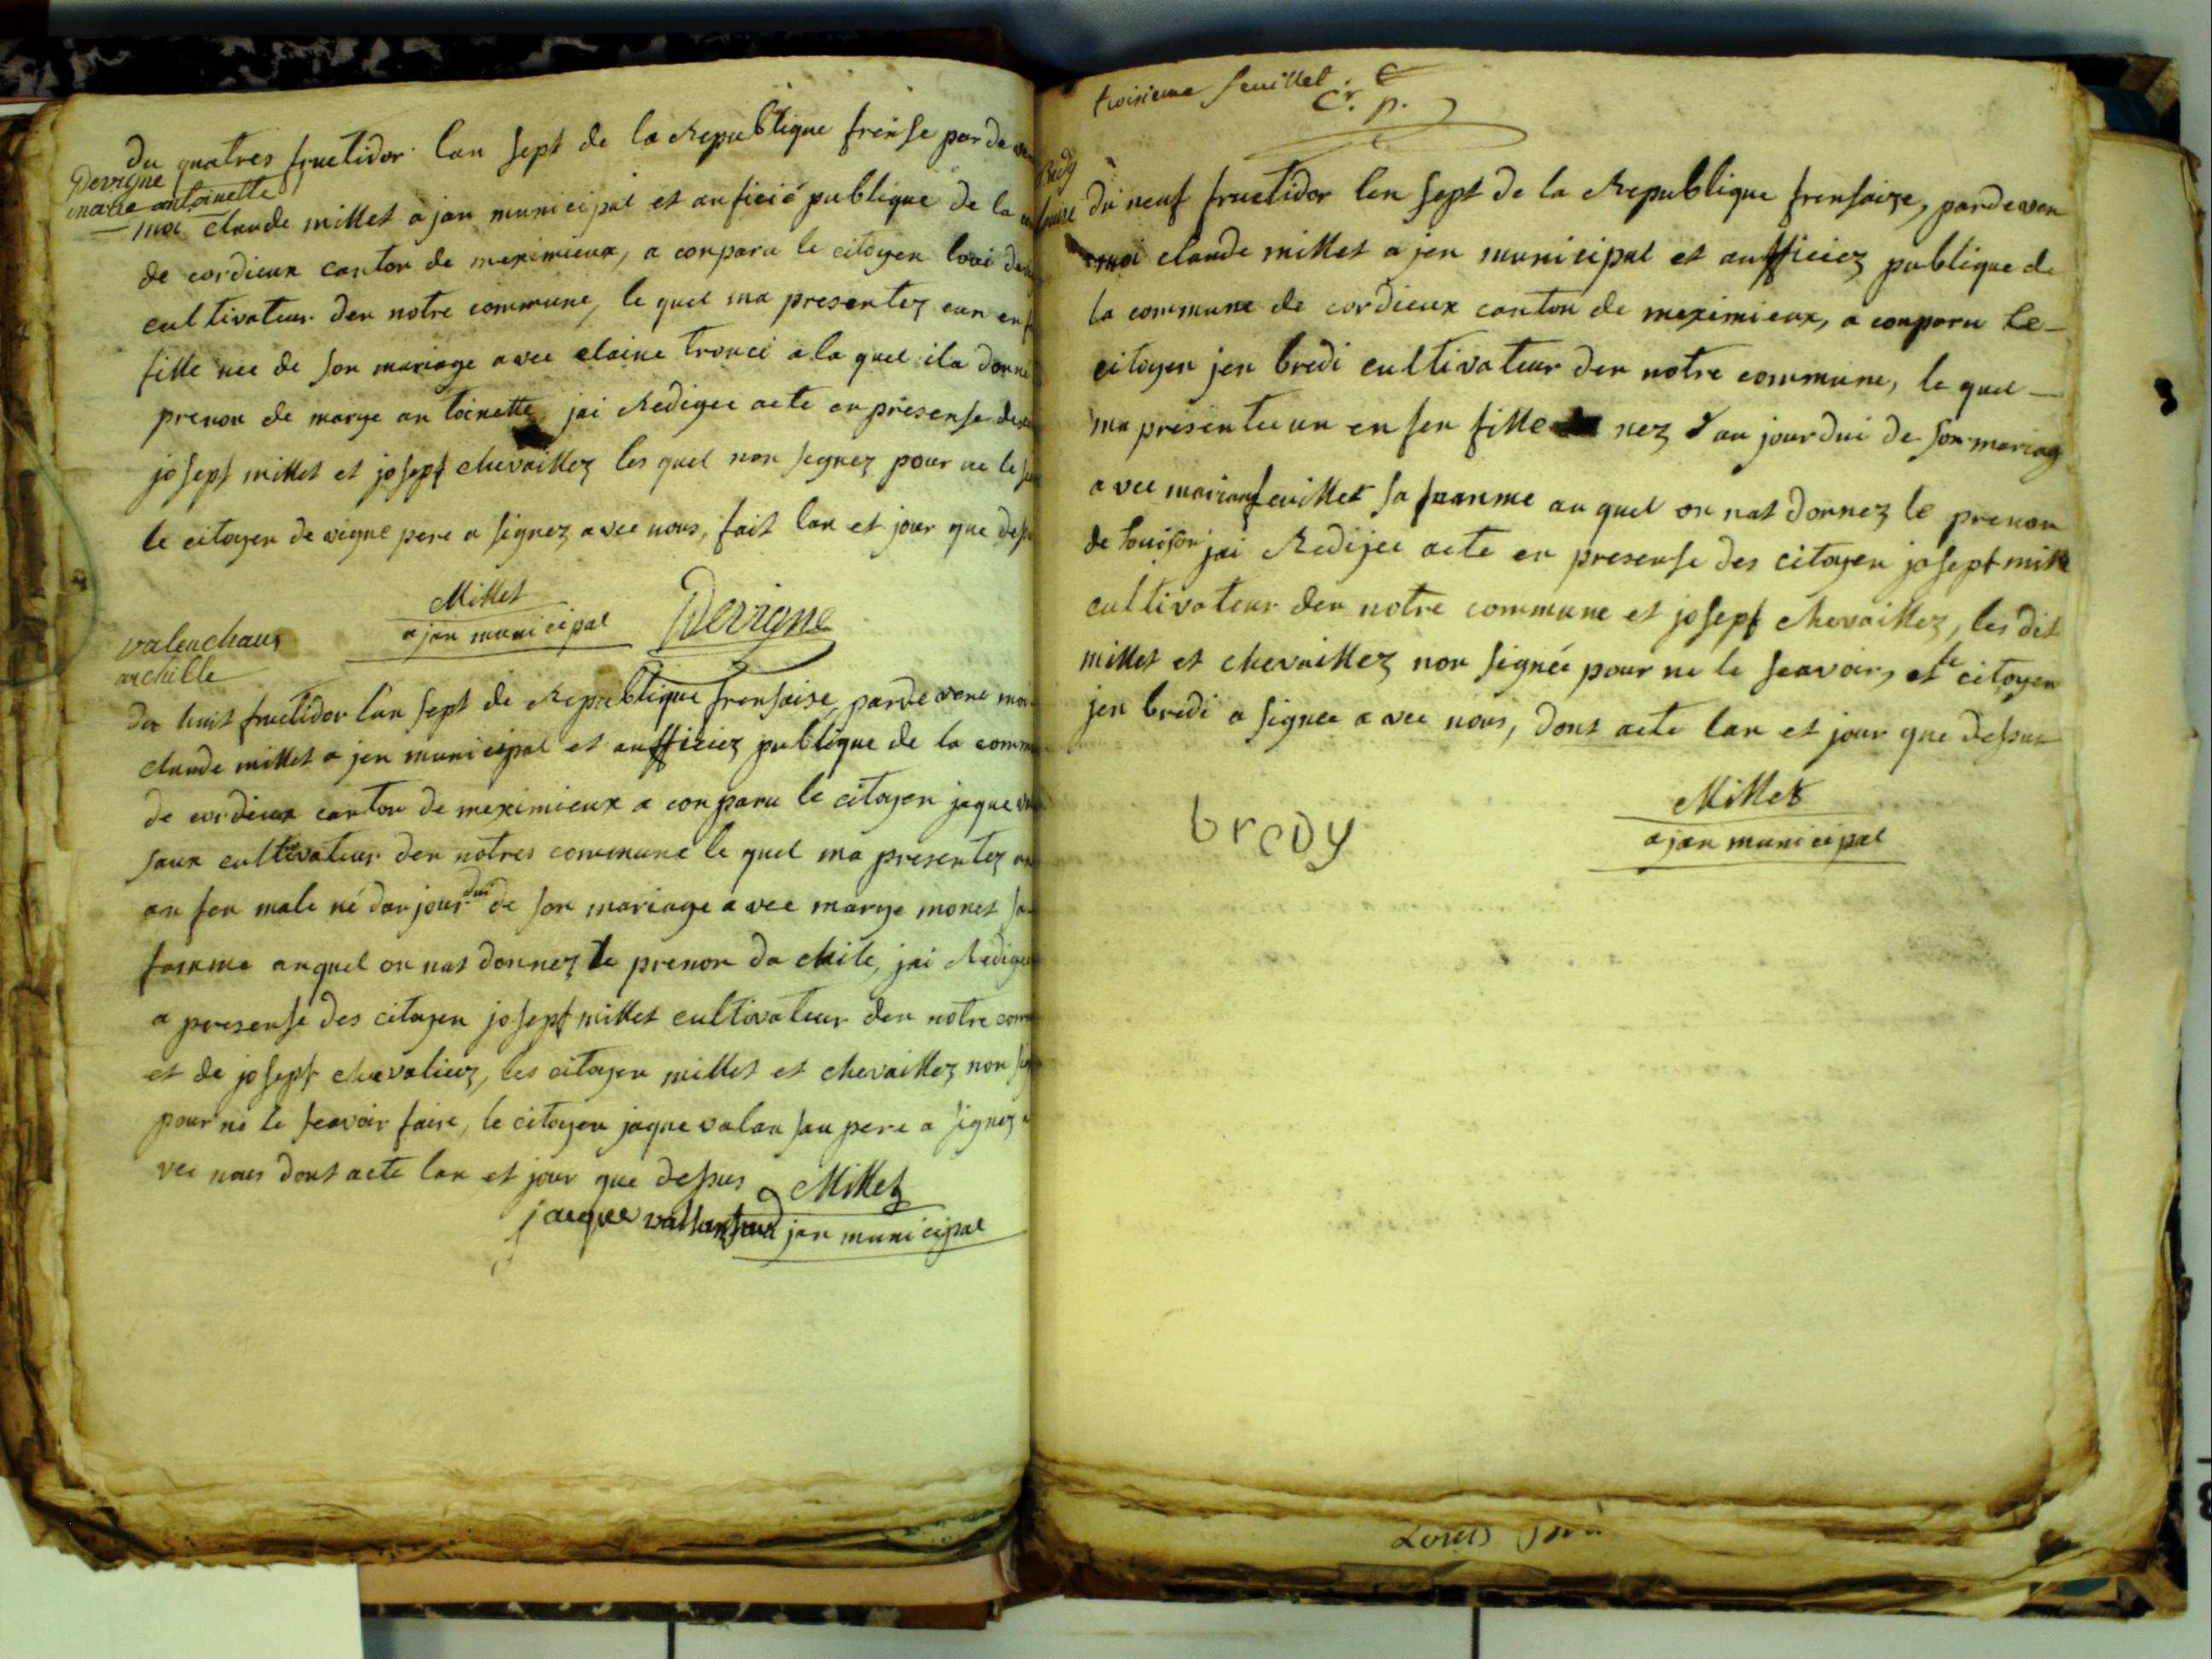 Devigne
marie antoinette
Du quatres fructidor lan sept de la Republique frense par de
moi claude millet ajan municipal et auficié publique de la
de cordieux canton de meximieux, a conparu le citoyen loui
cultivateur den notre commune, le quel ma presentez eun
fille nee de son mariage avec claine tronci a la quel ila donne
prenon de marye an toinette jai Redigee acte en presense des
josept millet et josept chevaillez les quel non segnez pour ne le
le citoyen de vigne pere a signez avec nous, fait lan et jour que
Millet
ajan municipal
Devigne
valenchaus
archille
du huit fructidor lan sept de Republique frensaise, parde vene moi
claude millet a jen municipal et aufficiez publique de la comm
de cordieux canton de meximieux a conparu le citoyen jaque
saux cultivateur den notres commune le quel ma presentez
an fen male né daujour dui de son mariage a vec marye monet sa
famme auquel on nas donnez le prenon da chile, jai Redigee
a presense des citoyen josept millet cultivateur den notre com
et de josept chevaliez, les citoyen millet et chevaillez non
pour ne le seavoir faire, le citoyen jaque valan sau pere a signez a
vec nous dont acte lan et jour que dessus
Millet
jacque vallansaud
a jan municipal
troisieme feuillet
C.r p.
du neuf fructidor len sept de la Republique frensaize, pardeven
moi claude millet a jen municipal et aufficiez publique de
la commune de cordieux canton de meximieux, a conparu le
citoyen jen bredi cultivateur den notre commune, le quel
ma presentee un en fen fille nez d au jourdui de son mariag
a vec feuillet sa fuamme au quel on nat donnez le prenon
de louison jai Redijee acte en presense des citoyen josept mill
cultivateur den notre commune et josept chevaillez, les dit
millet et chevaillez non signée pour ne le seavoir, et le citoyen
jen bredi a signee a vec nous, dont acte lan et jour que dessus
breDy
Millet
ajan municipal
Louis